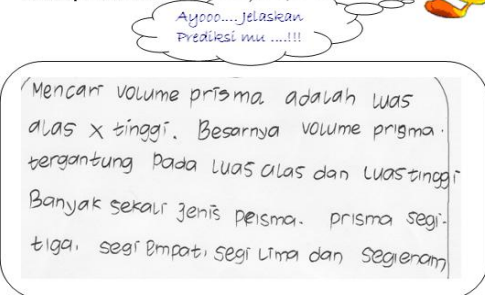 Ayooo.... Jelaskan
Prediksi mu ....!!!
Mencari volume prisma adalah luas
alas x tinggi. Besarnya volume prisma.
tergantung pada luas alas dan luas tinggi
Banyak sekali jenis peisma. prisma segi-
tiga, segi empat, segi lima dan segienam